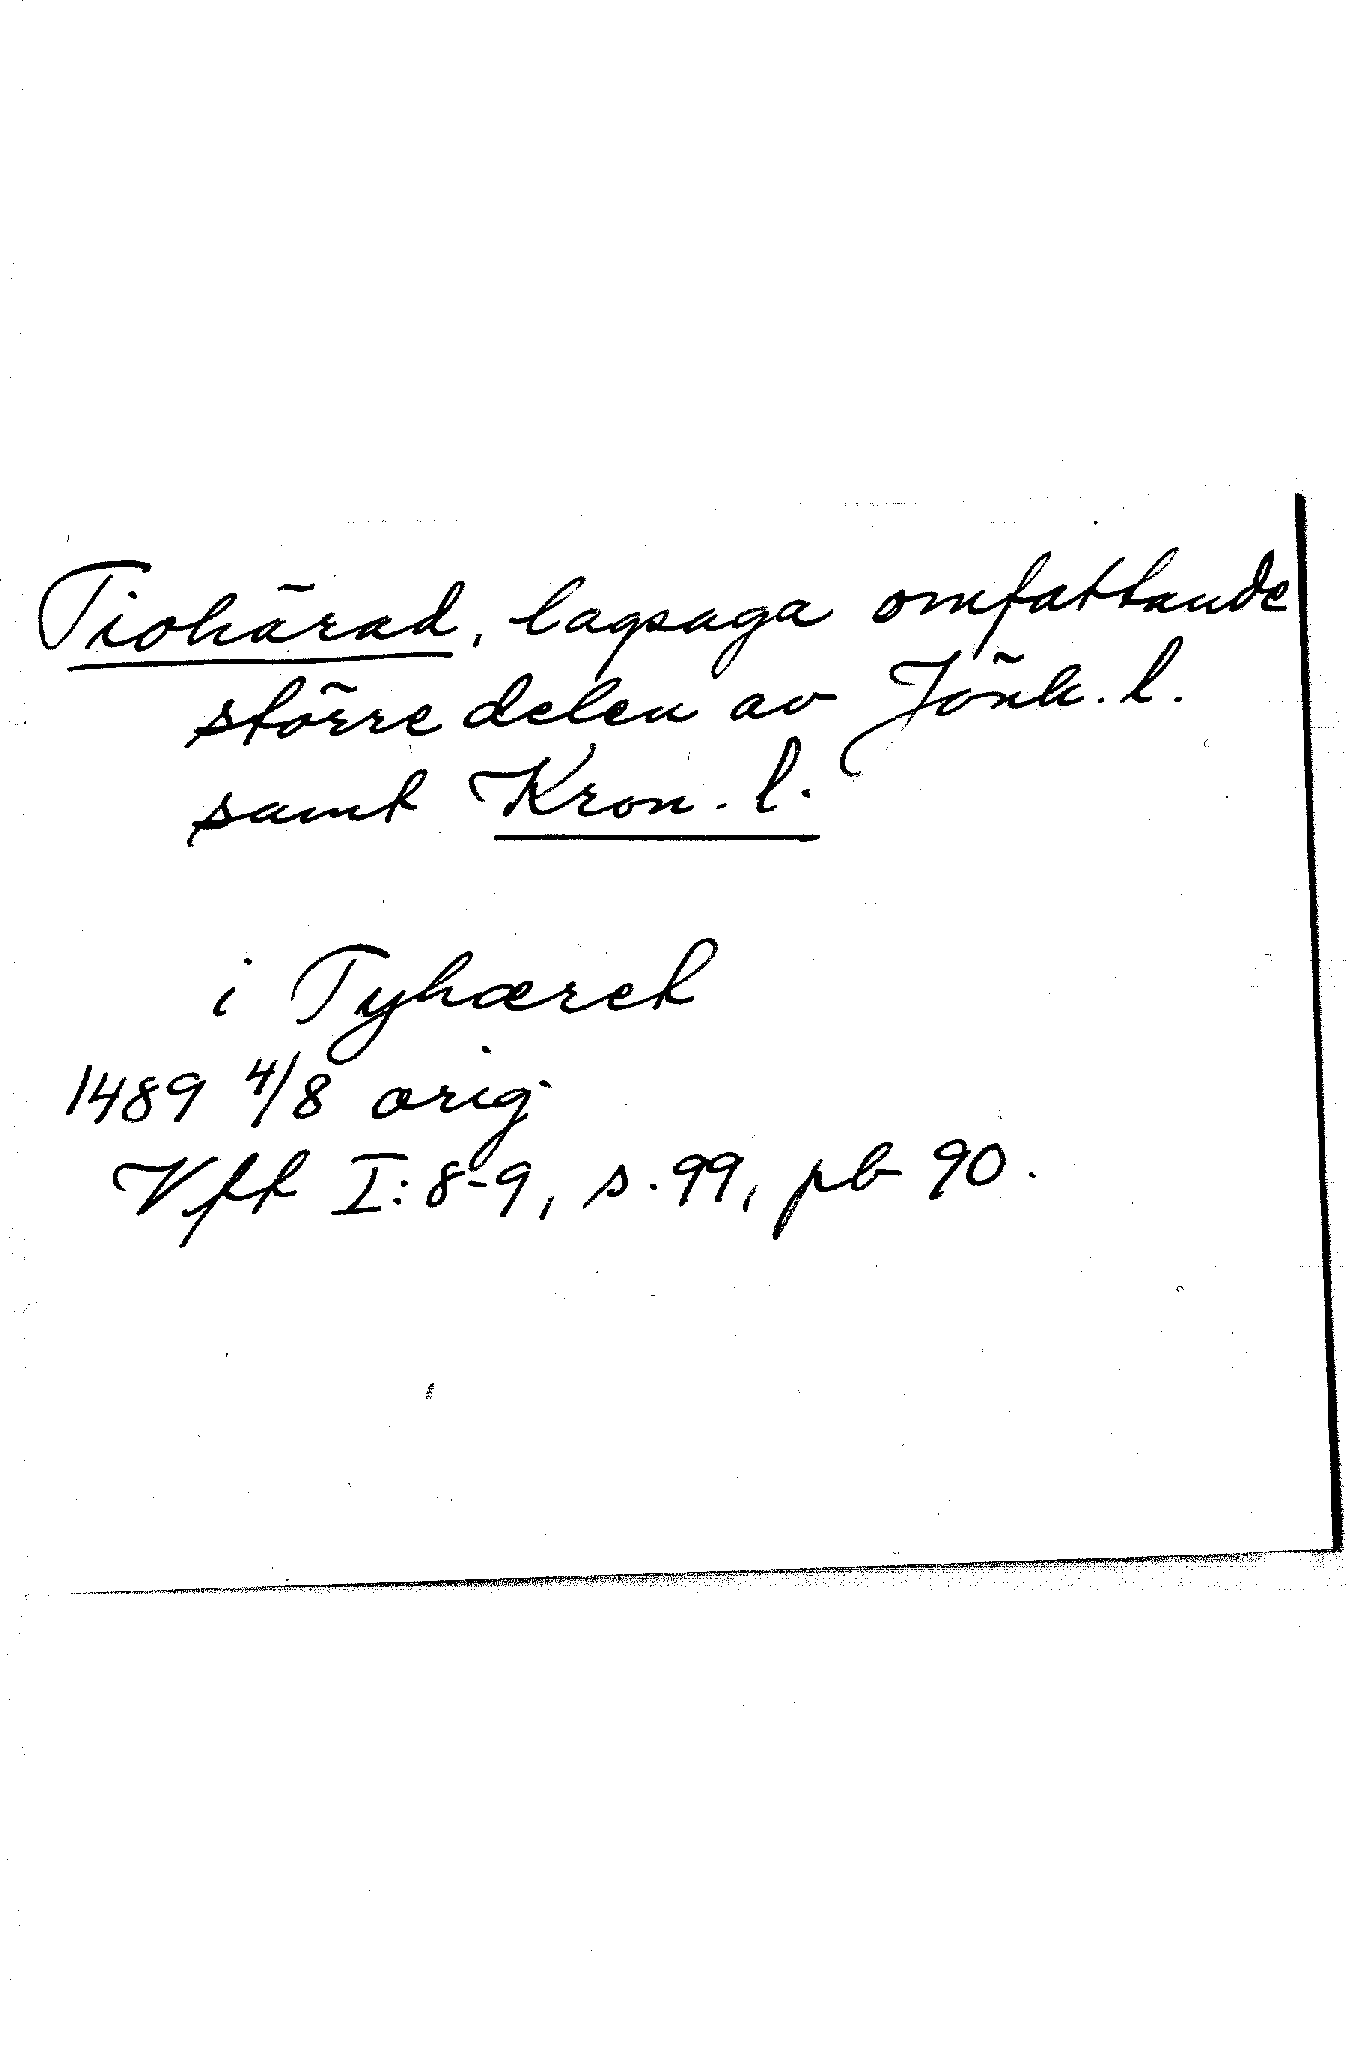 Tiohärad, lagsaga omfattande
större delen av Jönk. l.
samt Kron. l.
i Tyhæret
1489 4/8 orig
Vft I: 8-9, s. 99, pb 90.